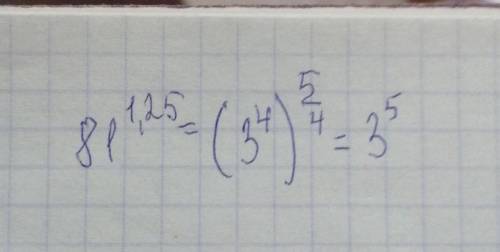 81^{1,25} = (3^4)^{\frac{5}{4}} = 3^5